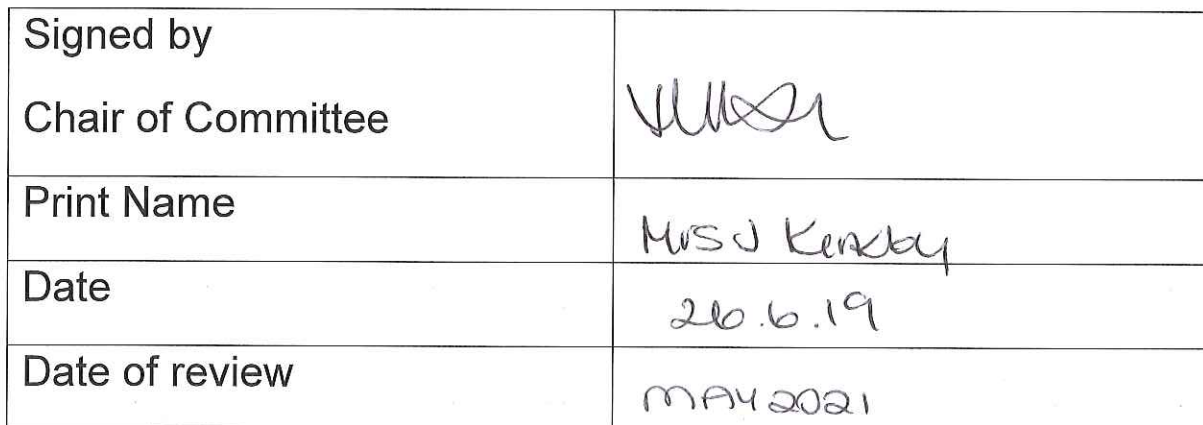 Signed by
Chair of Committee
Print Name
Mrs J Kerkby
Date
26.6.19
Date of review
MAY 2021